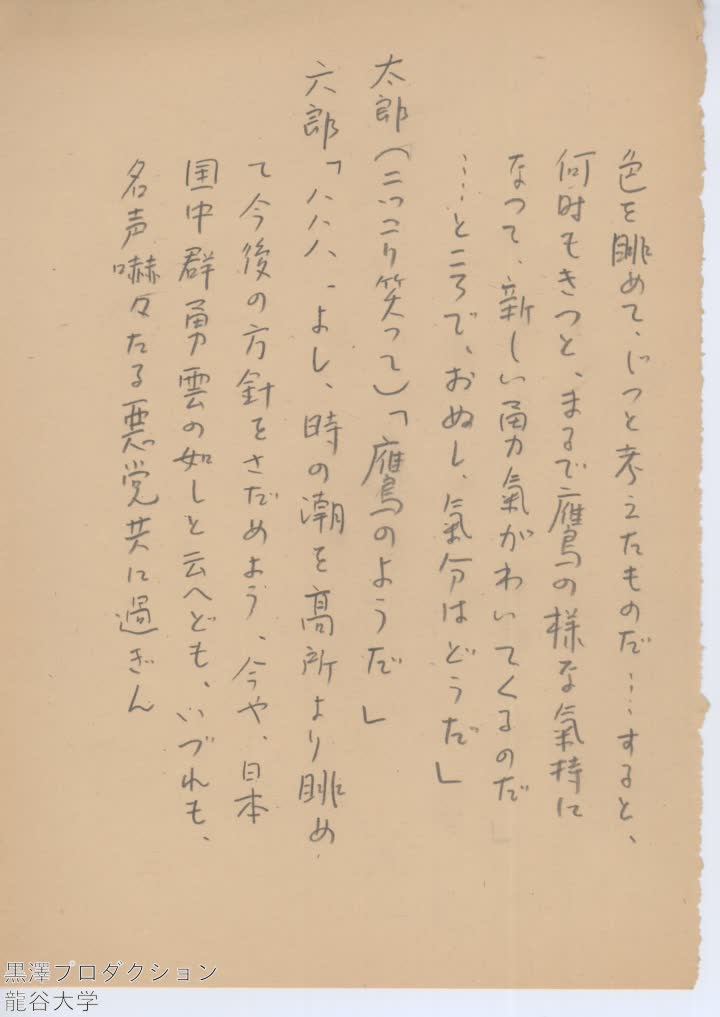 色を眺めて、じつと考えたものだ……すると、
何時もきつと、まるで鷹の様な氣持に
なつて、新しい勇氣がわいてくるのだ
……ところで、おぬし、氣分はどうだ」
太郎（にっこり笑って）「鷹のようだ」
六郎「ハハハ、よし、時の潮を高所より眺め
て今後の方針をさだめよう、今や、日本
国中群勇雲の如しと云へども、いづれも、
名声嚇々たる悪党共に過ぎん
黒澤プロダクション
龍谷大学